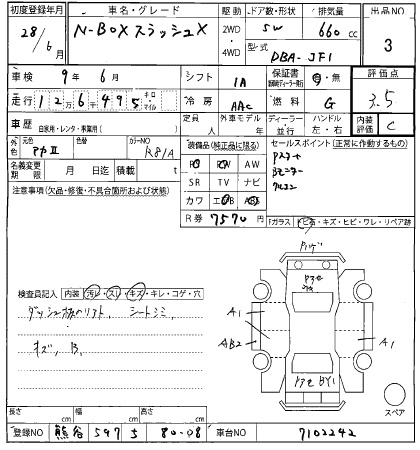 初度登録年月 車名・グレード 駆動 ドア数・形状 排気量 出品NO
28/6月 N-BOXスラッシュX 2WD 4WD 5W 660cc 3
型式 DBA-JF1
車検 9年6月 シフト IA 保証書 有・無 評価点
走行 126495 キロ マイル 冷房 AAC 燃料 G 3.5
車歴 自家用・レンタ・事業用( ) 定員 人 外車モデル 年 ディーラー・並行 ハンドル 左・右 内装評価 C
外色 元色 色替 カラーNO R81A
装備品(純正品に限る) セールスポイント(正常に作動するもの)
名義変更期限 月 日迄 積載 t PS PW AW
SR TV ナビ
カワ エアB ABS
R券 7570円
注意事項(欠品・修復・不具合箇所および状態)
Fガラス トビ石・キズ・ヒビ・ワレ・リペア跡
検査員記入 内装 汚レ・スレ・キズ・キレ・コゲ・穴
シートシミ
キズ、B、
A1
AB2 A1
スペア
長さ cm 幅 cm 高さ cm
登録NO 熊谷 597 80-08 車台NO 7102242